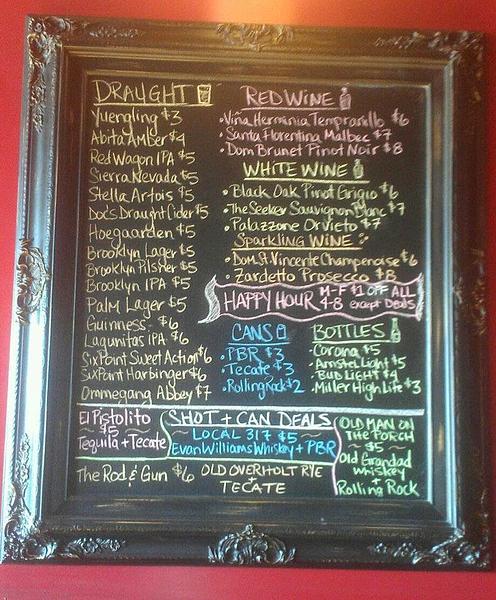 DRAUGHT
Yuengling $3
Abita Amber $4
Red Wagon IPA $5
Sierra Nevada $5
Stella Artois $5
Doc's Draught Cider $5
Hoegaarden $5
Brooklyn Lager $5
Brooklyn Pilsner $5
Brooklyn IPA $5
Palm Lager $5
Guinness $6
Lagunitas IPA $6
SixPoint Sweet Action $6
SixPoint Harbinger $6
Ommegang Abbey $7
RED WINE
•Viña Herminia Tempranillo $6
•Santa Florentina Malbec $7
•Dom Brunet Pinot Noir $8
WHITE WINE
•Black Oak Pinot Grigio $6
•The Seeker Sauvignon Blanc $7
•Palazzone Orvieto $7
SPARKLING WINE
•Dom St. Vincente Champenoise $6
•Zardetto Prosecco $8
HAPPY HOUR M-F $1 OFF ALL
4-8 except DEALS
CANS
•PBR $3
•Tecate $3
•Rolling Rock $2
BOTTLES
•Corona $5
•Amstel Light $5
•BUD LIGHT $4
•Miller High Life $3
El Pistolito
~ $5 ~
Tequila + Tecate
SHOT + CAN DEALS
~ LOCAL 317 $5 ~
Evan Williams Whiskey + PBR
OLD MAN ON
THE PORCH
~ $5 ~
Old Grandad
whiskey
+
Rolling Rock
The Rod & Gun $6 OLD OVERHOLT RYE
+
TECATE